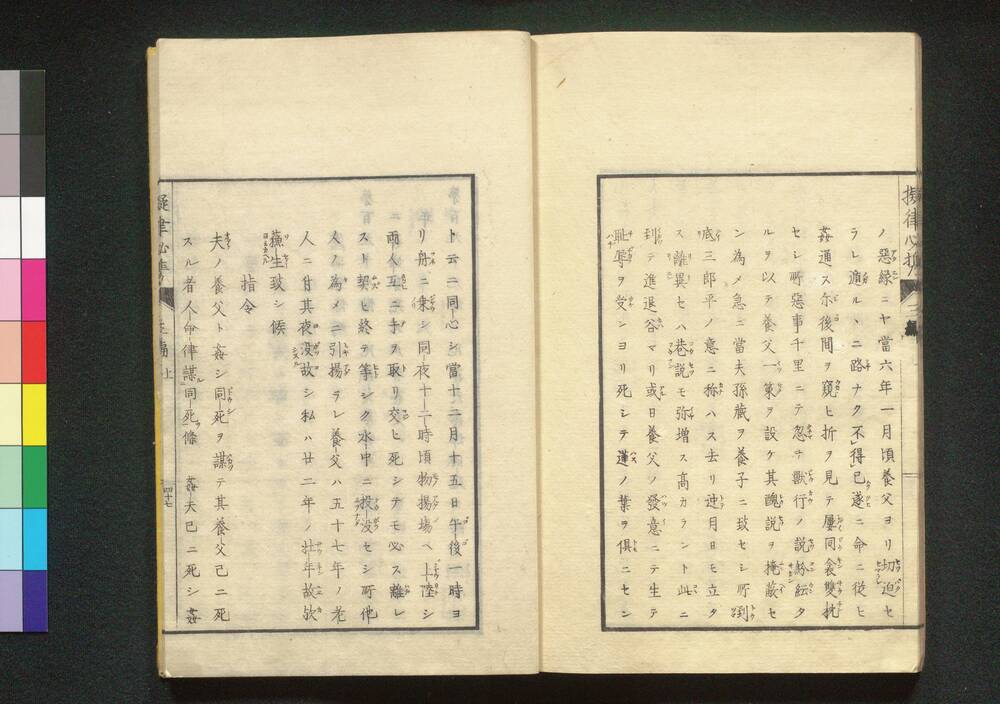 擬律必携 二編
ノ惡緣ニヤ當六年一月頃養父ヨリ切迫セ
ラレ遁ルヽニ路ナク不得已遂ニ命ニ從ヒ
姦通ス尓後間ヲ窺ヒ折ヲ見テ屢同衾雙枕
セシ所惡事千里ニテ忽チ獸行ノ説紛紜タ
ルヲ以テ養父一策ヲ設ケ其醜説ヲ掩蔽セ
ン為メ急ニ當夫孫藏ヲ養子ニ致セシ所到
底三郎平ノ意ニ称ハス去リ迚月日モ立タ
ス離異セハ巷説モ弥増ス髙カラント此ニ
到テ進退谷マリ或日養父ノ發意ニテ生テ
耻辱ヲ受ンヨリ死シテ蓮ノ葉ヲ俱ニセン
ト云ニ同心シ當十二月十五日午後一時ヨ
リ舟ニ乗シ同夜十二時頃物揚場ヘ上陸シ
兩人互ニ手ヲ取リ交ヒ死シテモ必ス離レ
スト契ヒ終テ等シク水中ニ投没セシ所他
人ノ為メニ引揚ラレ養父ハ五十七年ノ老
人ニ付其夜没故シ私ハ廿二年ノ壮年故欤
蘓生致シ候
指令
夫ノ養父ト姦シ同死ヲ謀テ其養父已ニ死
スル者人命律謀同死條 姦夫已ニ死シ姦
上
四十七